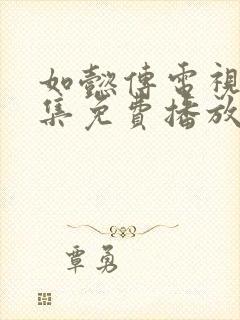 如懿傳電視
集免費播放
覃勇